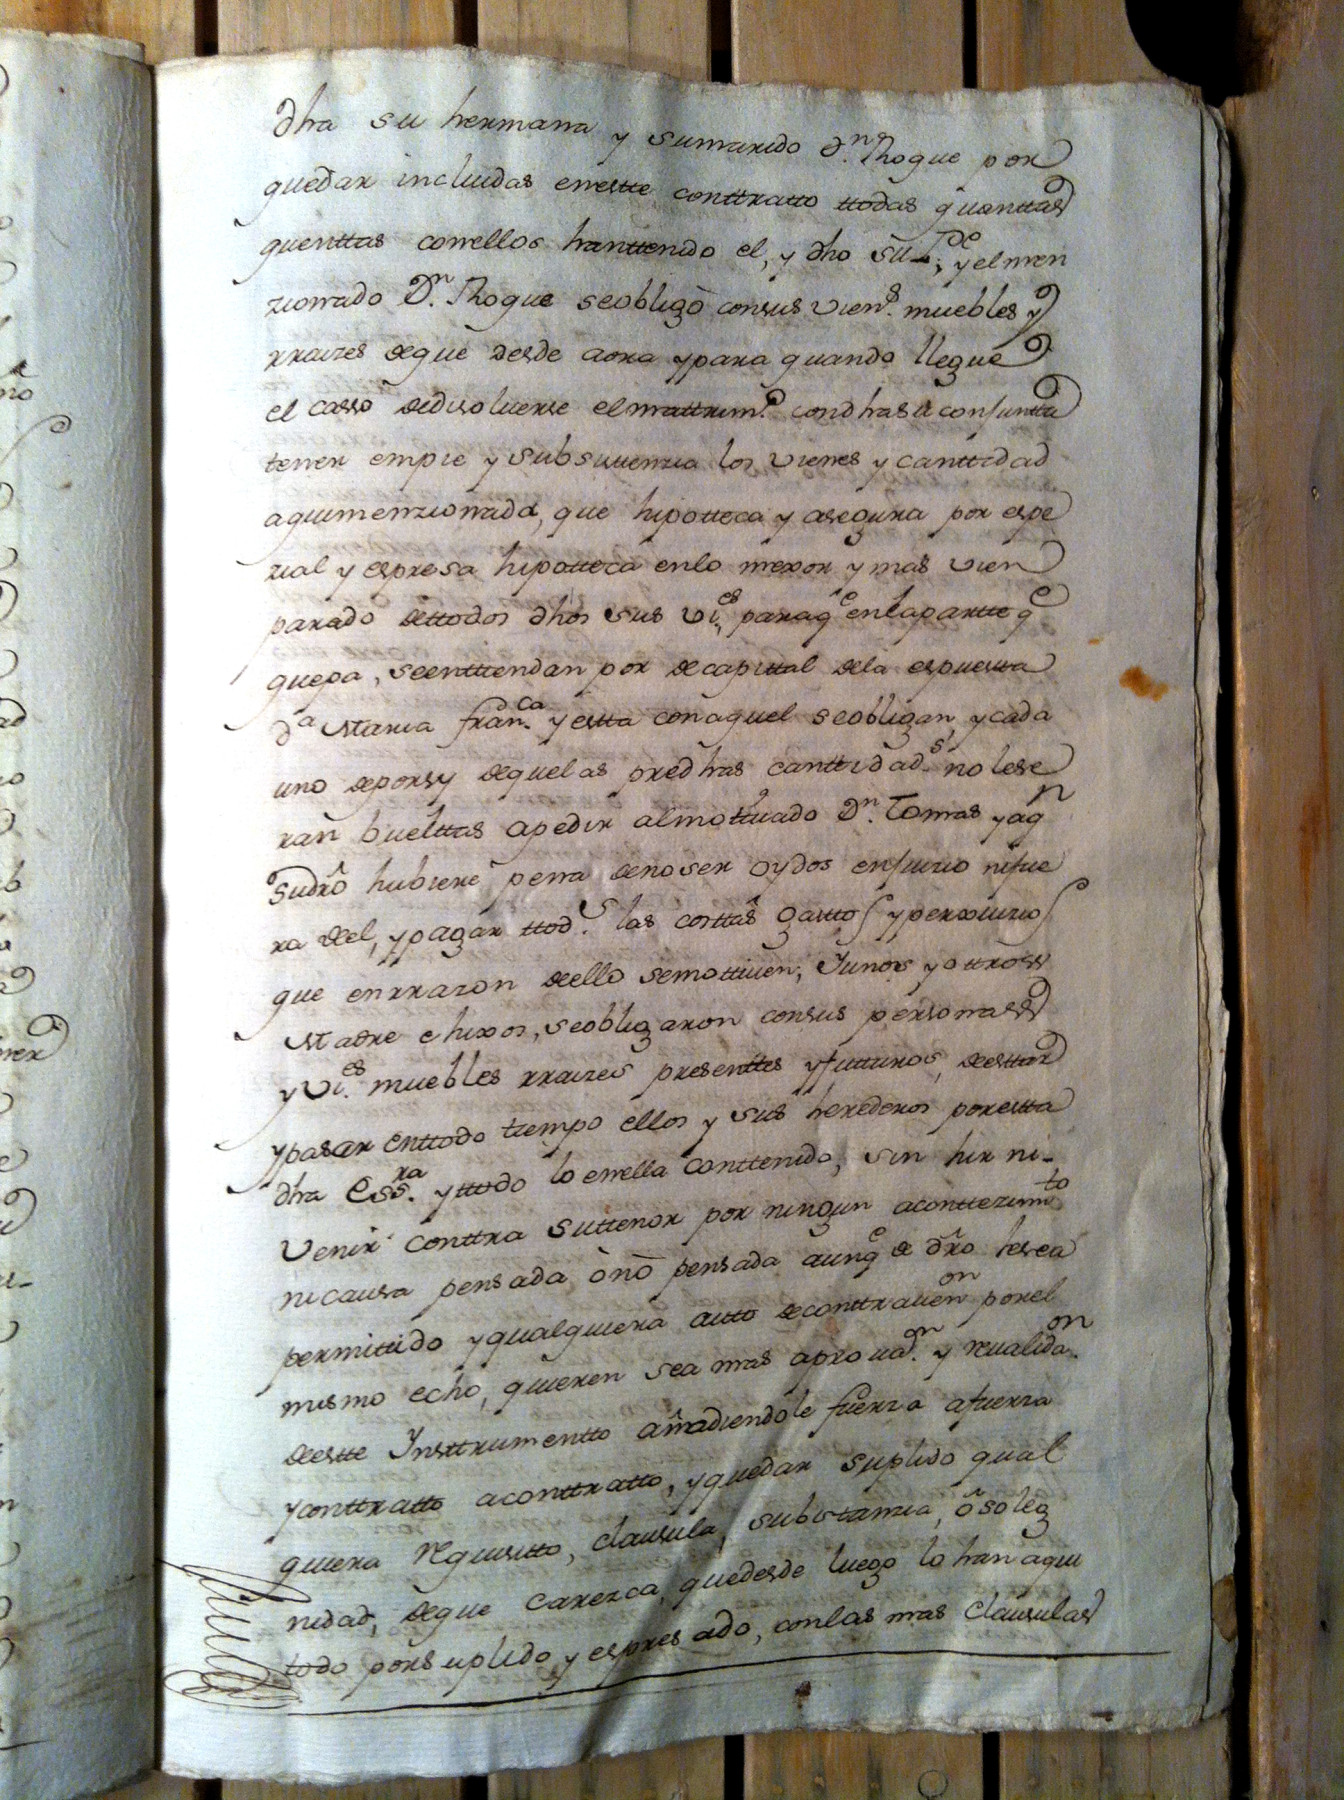 dha su hermana y sumarido Dn. Rhoque por
quedar incluidas enestte conttratto ttodas quanttas
quenttas conellos hanttenido el, y dho su Pe; y el men
zionado Dn. Rhoque seobligò consus viens. muebles y
rraizes deque desde aora ypara quando llegue
el casso dedisoluerse elmattrimo. condhasu conjuntta
tener empie y subsistienzia los vienes y canttidad
aquimenzionada, que hipotteca y asegura por espe
zial y espresa hipotteca enlo mexor y mas vien
parado dettodos dhos sus vies, paraqe enlapartte qe
quepa, seenttiendan por decapittal dela espuesta
Da Maria Franca. y estta conaquel seobligan, ycada
uno deporsy dequelas predhas canttidads. nolese
ran bueltas apedir almottiuado Dn. Tomas yaqn
Sudro hubiere pena denoser oydos enjuizio nifue
ra del, ypagar ttods. las costtas gasttos yperxuizios
que enrrazon deello semottiuen; Yunos yottross
Madre e hixos, seobligaron consus personass
y vies. muebles rraizes presenttes yfutturos, deesttar
ypasar enttodo tiempo ellos y sus herederos porestta
dha Essra. yttodo lo enella conttenido, sin hir ni-
Venir conttra suttenor por ningun aconttezimto
nicausa pensada ònò pensada aunqe de dro lesea
permitido yqualquiera autto deconttrauenon porel
mismo echo, quieren sea mas aprouadon. y reualidaon.
deestte Ynsttrumentto añadiendole fuerza afuerza
yconttratto aconttratto, yquedar suplido qual
quiera requisitto, clausula, substanzia, òsoleg
nidad, deque carezca, quedesde luego lo han aqui
todo porsuplido y espresado, conlas mas clausulas